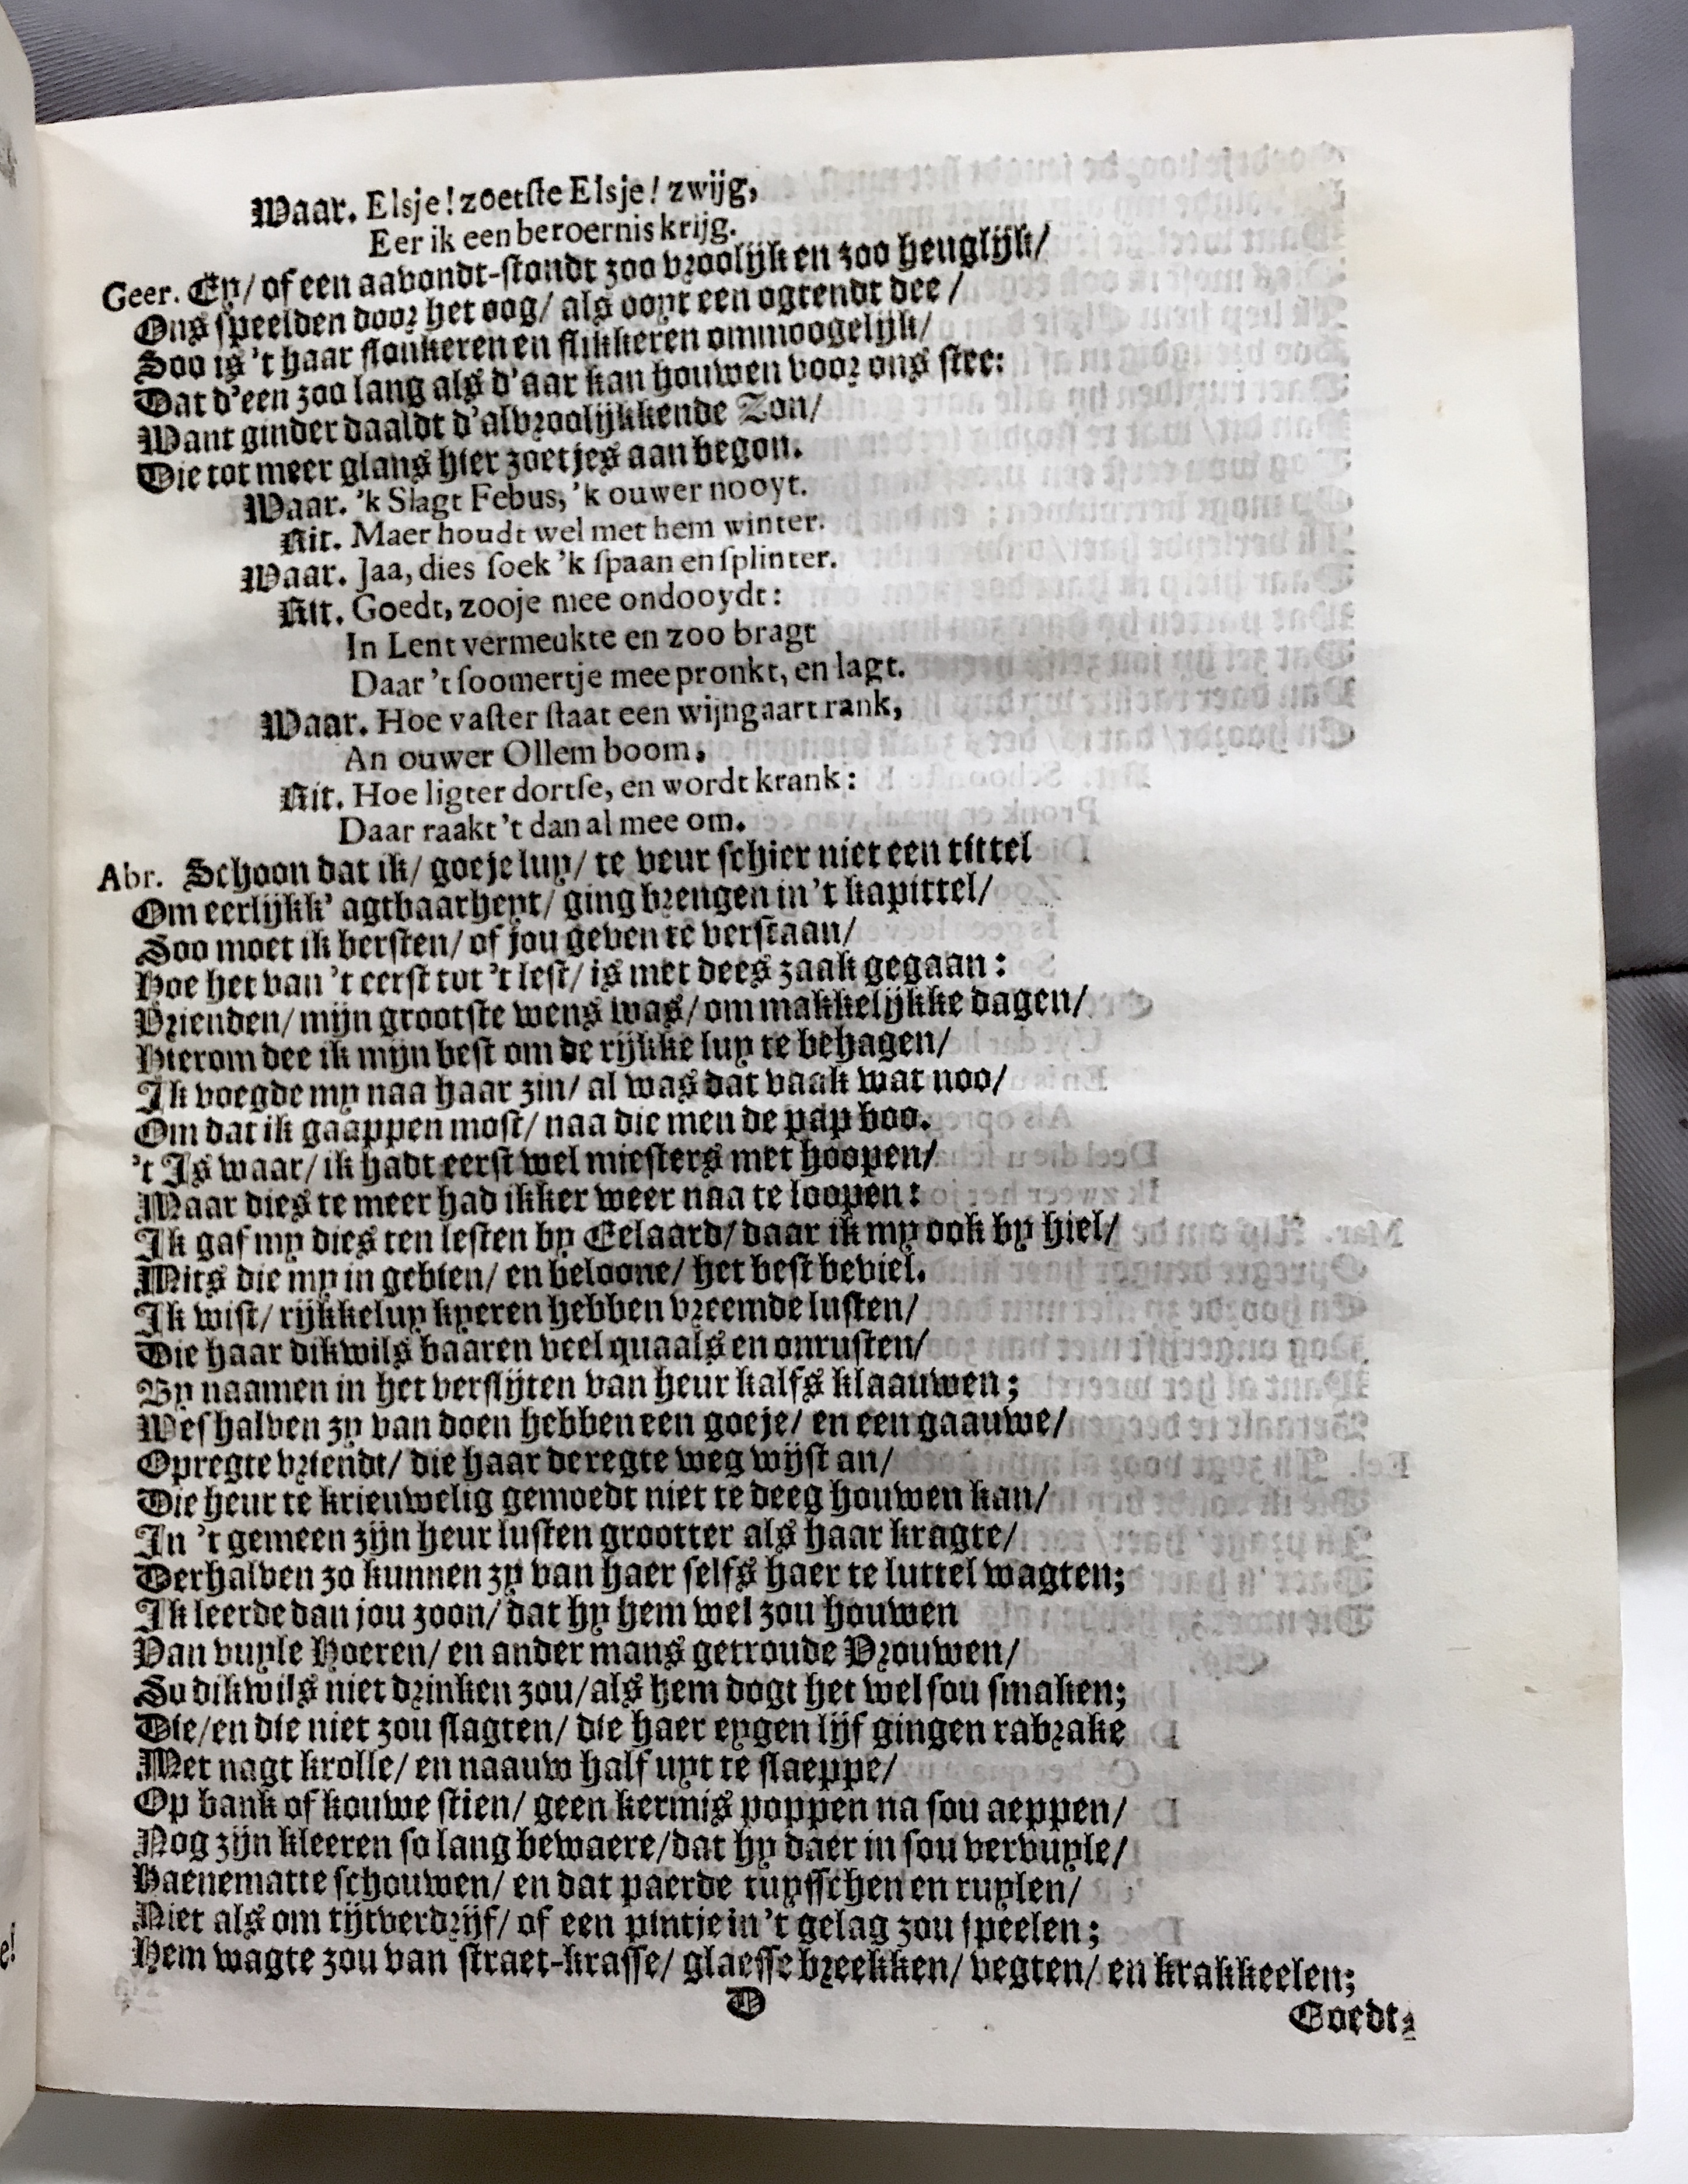 Waar. Elsje! zoetſte Elsje! zwijg,
Eer ik een beroernis krijg.
Geer. Ey/ of een aavondt-ſtondt zoo vroolijk en zoo heuglijk/
Ons ſpeelden door het oog/ als ooyt een ogtendt dee/
Soo is 't haar flonkeren en flikkeren ommoogelijk/
Dat d'een zoo lang als d'aar kan houwen voor ons ſtee:
Want ginder daaldt d'alvroolijkkende Zon/
Die tot meer glans hier zoetjes aan begon.
Waar. 'k Slagt Febus, 'k ouwer nooyt.
Rit. Maer houdt wel met hem winter.
Waar. Jaa, dies ſoek 'k ſpaan en ſplinter.
Rit. Goedt, zooje mee ondooydt:
In Lent vermeukte en zoo bragt
Daar 't ſoomertje mee pronkt, en lagt.
Waar. Hoe vaſter ſtaat een wijngaart rank,
An ouwer Ollem boom,
Rit. Hoe ligter dortſe, en wordt krank:
Daar raakt 't dan al mee om.
Abr. Schoon dat ik/ goeje luy/ te veur ſchier niet een tittel
Om eerlijkk' agtbaarheyt/ ging brengen in 't kapittel/
Soo moet ik berſten/ of jou geven te verſtaan/
Hoe het van 't eerſt tot 't leſt/ is met dees zaak gegaan:
Vrienden/ mijn grootſte wens was/ om makkelijkke dagen/
Hierom dee ik mijn beſt om de rijkke luy te behagen/
Ik voegde my naa haar zin/ al was dat vaak wat noo/
Om dat ik gaappen moſt/ naa die men de pap boo.
't Is waar/ ik hadt eerſt wel mieſters met hoopen/
Maar dies te meer had ikker weer naa te loopen:
Ik gaf my dies ten leſten by Eelaard/ daar ik my ook by hiel/
Mits die my in gebien/ en beloone/ het beſt beviel.
Ik wiſt/ rijkkeluy kyeren hebben vreemde luſten/
Die haar dikwils baaren veel quaals en onruſten/
By naamen in het verſlijten van heur kalfs klaauwen;
Weſhalven zy van doen hebben een goeje/ en een gaauwe/
Opregte vriendt/ die haar de regte weg wijſt an/
Die heur te krieuwelig gemoedt niet te deeg houwen kan/
In 't gemeen zijn heur luſten grootter als haar kragte/
Derhalven zo kunnen zy van haer ſelfs haer te luttel wagten;
Ik leerde dan jou zoon/ dat hy hem wel zou houwen
Van vuyle Hoeren/ en ander mans getroude Vrouwen/
So dikwils niet drinken zou/ als hem dogt het wel ſou ſmaken;
Die/ en die niet zou ſlagten/ die haer eygen lijf gingen rabrake
Met nagt krolle/ en naauw half uyt te ſlaeppe/
Op bank of kouwe ſtien/ geen kermis poppen na ſou aeppen/
Nog zijn kleeren ſo lang bewaere/ dat hy daer in ſou vervuyle/
Haenematte ſchouwen/ en dat paerde tuyſſchen en ruylen/
Niet als om tijtverdrijf/ of een pintje in 't gelag zou ſpeelen;
Hem wagte zou van ſtraet-kraſſe/ glaeſſe breekken/ vegten/ en krakkeelen;
D
Goedt,
e!